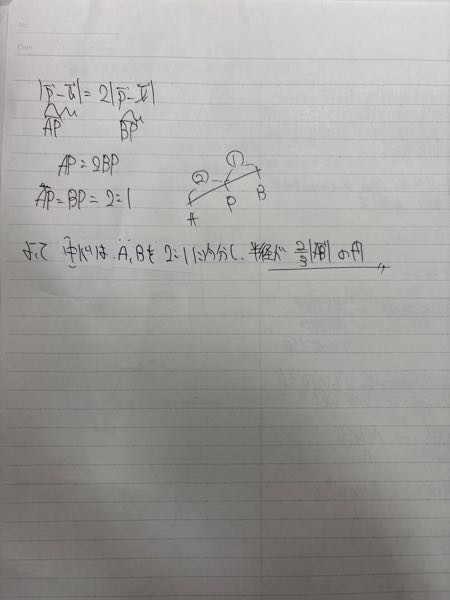 No.
Date
|p⃗-a⃗|=2|p⃗-b⃗|
AP BP
AP=2BP
AP=BP=2=1
② ①
A P B
よって 中心は、A,Bを2:1に内分し、半径が 2/3|AB| の円